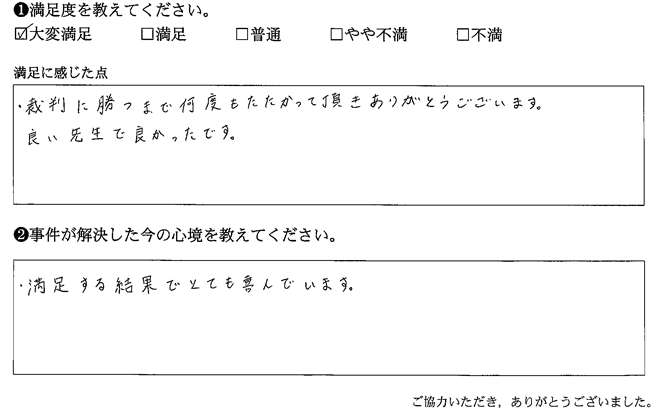 ❶満足度を教えてください。
☑大変満足 □満足 □普通 □やや不満 □不満
満足に感じた点
・裁判に勝つまで何度もたたかって頂きありがとうございます。
良い先生で良かったです。
❷事件が解決した今の心境を教えてください。
・満足する結果でとても喜んでいます。
ご協力いただき，ありがとうございました。